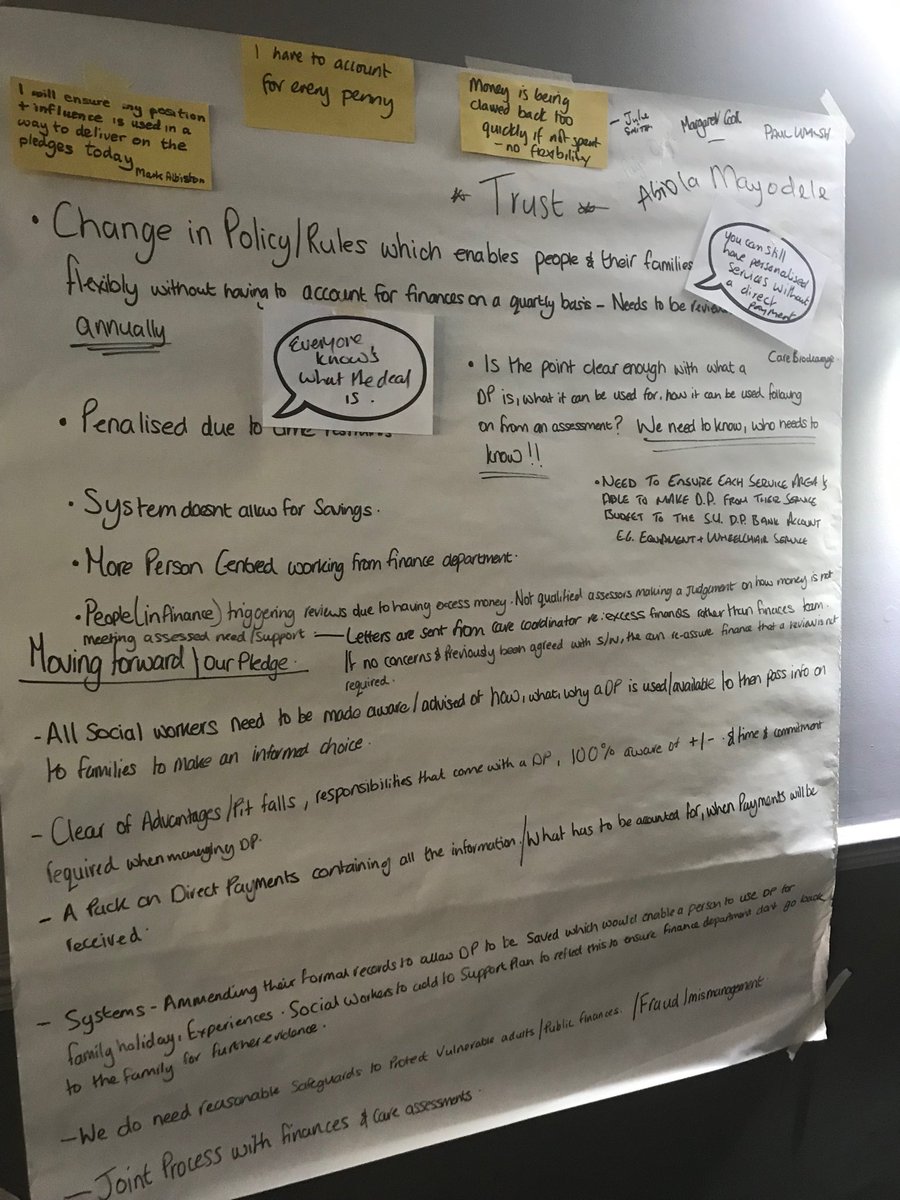 I will ensure my position
+ influence is used in a
way to deliver on the
pledges today
Mark Albiston
I have to account
for every penny
Money is being
clawed back too
quickly if not spent
- no flexibility
- Julie
Smith
Margaret Cook
PAUL WALSH
* Trust *
Abiola Mayodele
• Change in Policy/Rules which enables people & their families
flexibly without having to account for finances on a quartly basis - Needs to be
annually
you can still
have personalised
services without
a direct
payment
Everyone
knows
what the deal
is.
• Penalised due to time
• Is the point clear enough with what a
DP is, what it can be used for, how it can be used following
on from an assessment? We need to know, who needs to
know!!
• System doesnt allow for Savings.
• NEED TO ENSURE EACH SERVICE AREA IS
ABLE TO MAKE D.P. FROM THEIR SERVICE
BUDGET TO THE S.U. D.P. BANK ACCOUNT
E.G. EQUIPMENT + WHEELCHAIR SERVICE
• More Person Centred working from finance department.
• People (in finance) triggering reviews due to having excess money. Not qualified assessors making a judgement on how money is not
meeting assessed need/support - Letters are sent from care coordinator re: excess finances rather than finances team.
If no concerns & previously been agreed with S/W, the can re-assure finance that a review is not
required.
Moving forward / our Pledge.
- All Social workers need to be made aware/advised of how, what, why a DP is used/available to then pass info on
to families to make an informed choice.
- Clear of Advantages/Pit falls, responsibilities that come with a DP, 100% aware of +/- & time & commitment
required when managing DP.
- A Pack on Direct Payments containing all the information./What has to be accounted for, when Payments will be
received.
- Systems - Ammending their formal records to allow DP to be Saved which would enable a person to use DP for
family holiday, Experiences. Social Workers to add to Support Plan to reflect this to ensure finance department dont go back
to the family for further evidence.
- We do need reasonable Safeguards to Protect Vulnerable adults/Public finances. /Fraud/mismanagement
- Joint Process with finances & care assessments.